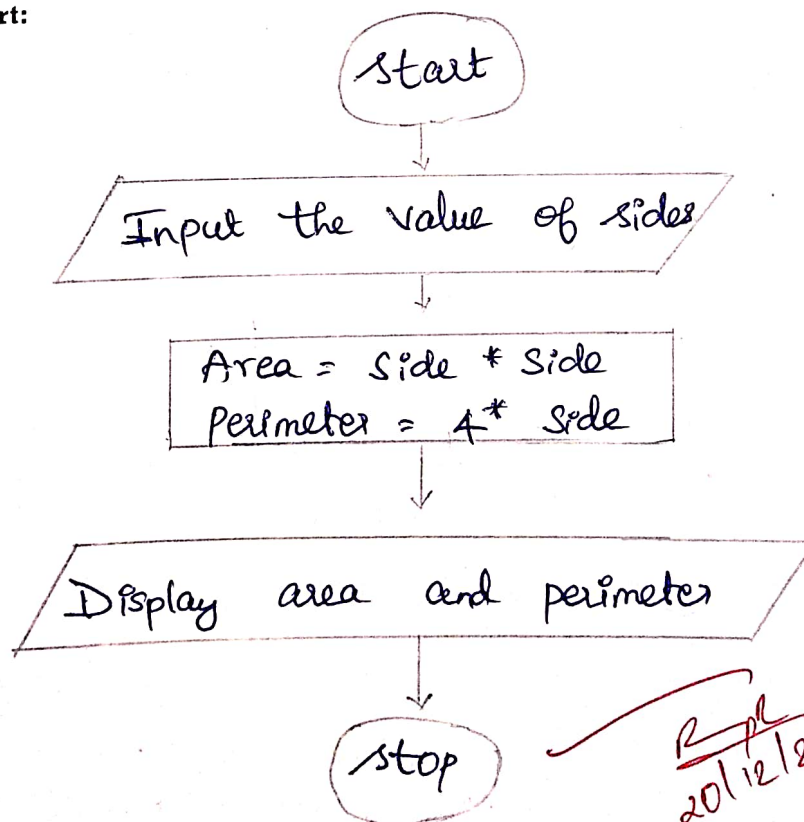 rt:
start
Input the value of sides
Area = Side * Side
Perimeter = 4* Side
Display area and perimeter
stop
20/12/2